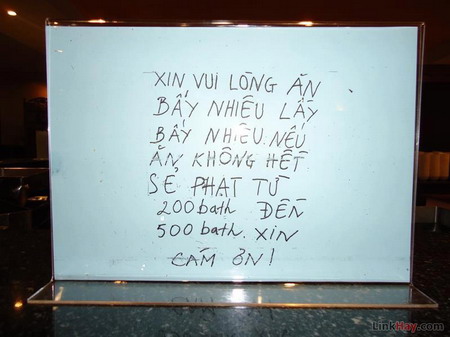 XIN VUI LÒNG ĂN
BẤY NHIÊU LẤY
BẤY NHIÊU. NẾU
ĂN KHÔNG HẾT
SẺ PHẠT TỪ
200 bath ĐẾN
500 bath. XIN
CÁM ƠN!
LinkHay.com